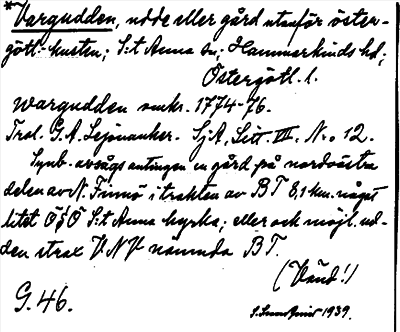 *Vargudden, udde eller gård utanför öster-
götl. kusten; S:t Anna sn; Hammarkinds hd;
Östergötl. l.
Wargudden omkr. 1774-76.
Trol. G. A. Lejonanker. SjA, Litt. III, No 12.
Synb. avsågs antingen en gård på nordöstra
delen av N. Finnö i trakten av BT 8,1 km. något
litet ÖSÖ S:t Anna kyrka; eller ock möjl. ud-
den strax VNV nämnda BT.
(Vänd!)
G. 46.
1939.